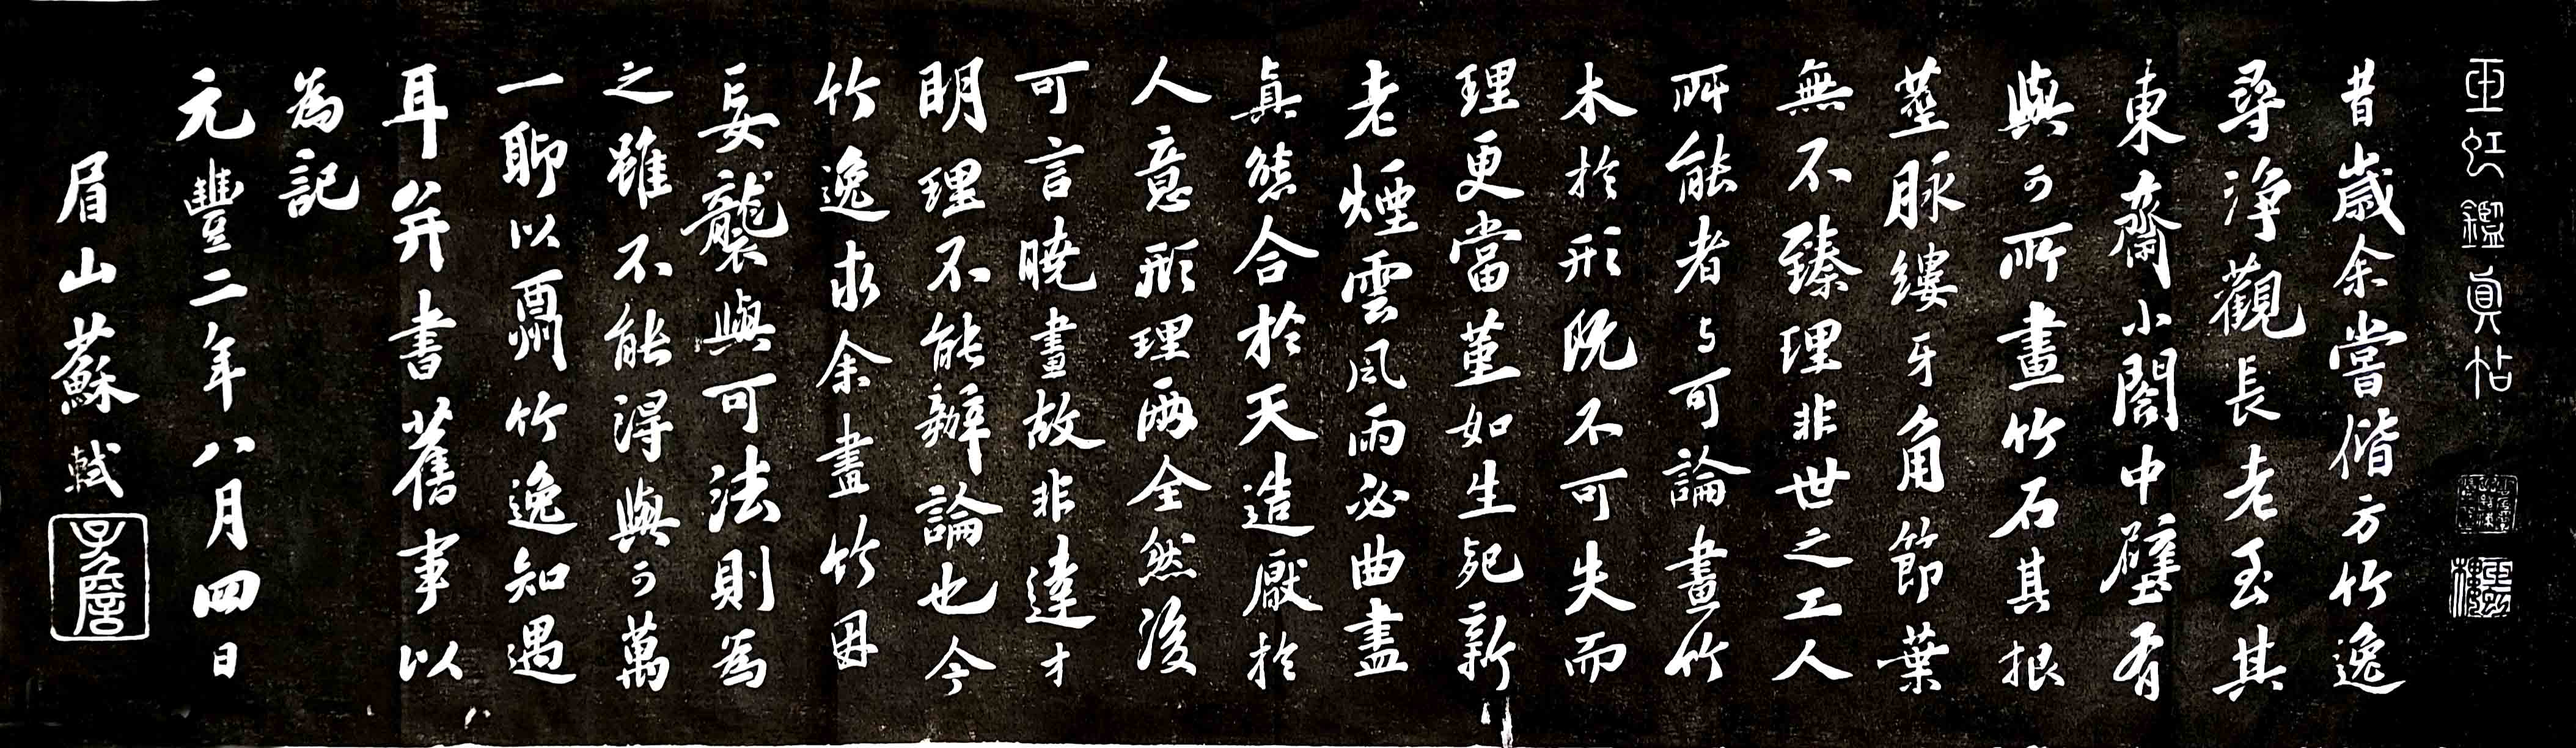 玉虹鑑真帖
昔歲余嘗偕方竹逸
尋淨觀長老至其
東齋小閣中壁有
與可所畫竹石其根
莖脉縷牙角節葉
無不臻理非世之工人
所能者与可論畫竹
木於形既不可失而
理更當
如生死新
老煙雲風雨必曲盡
真態合於天造厭於
人意形理兩全然後
可言曉畫故非達才
明理不能辯論也今
竹逸求余畫竹因
妄襲與可法則為
之雖不能得與可萬
一聊以酬竹逸知遇
耳并書舊事以
為記
元豐二年八月四日
眉山蘇軾